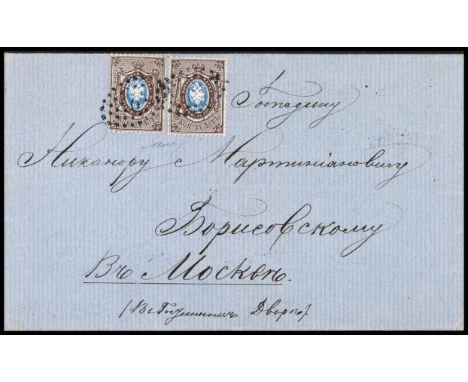 Господину
Никанору Мартиніановичу
Борисовскому
Въ Москвѣ.
(Въ Гостинномъ Дворѣ).